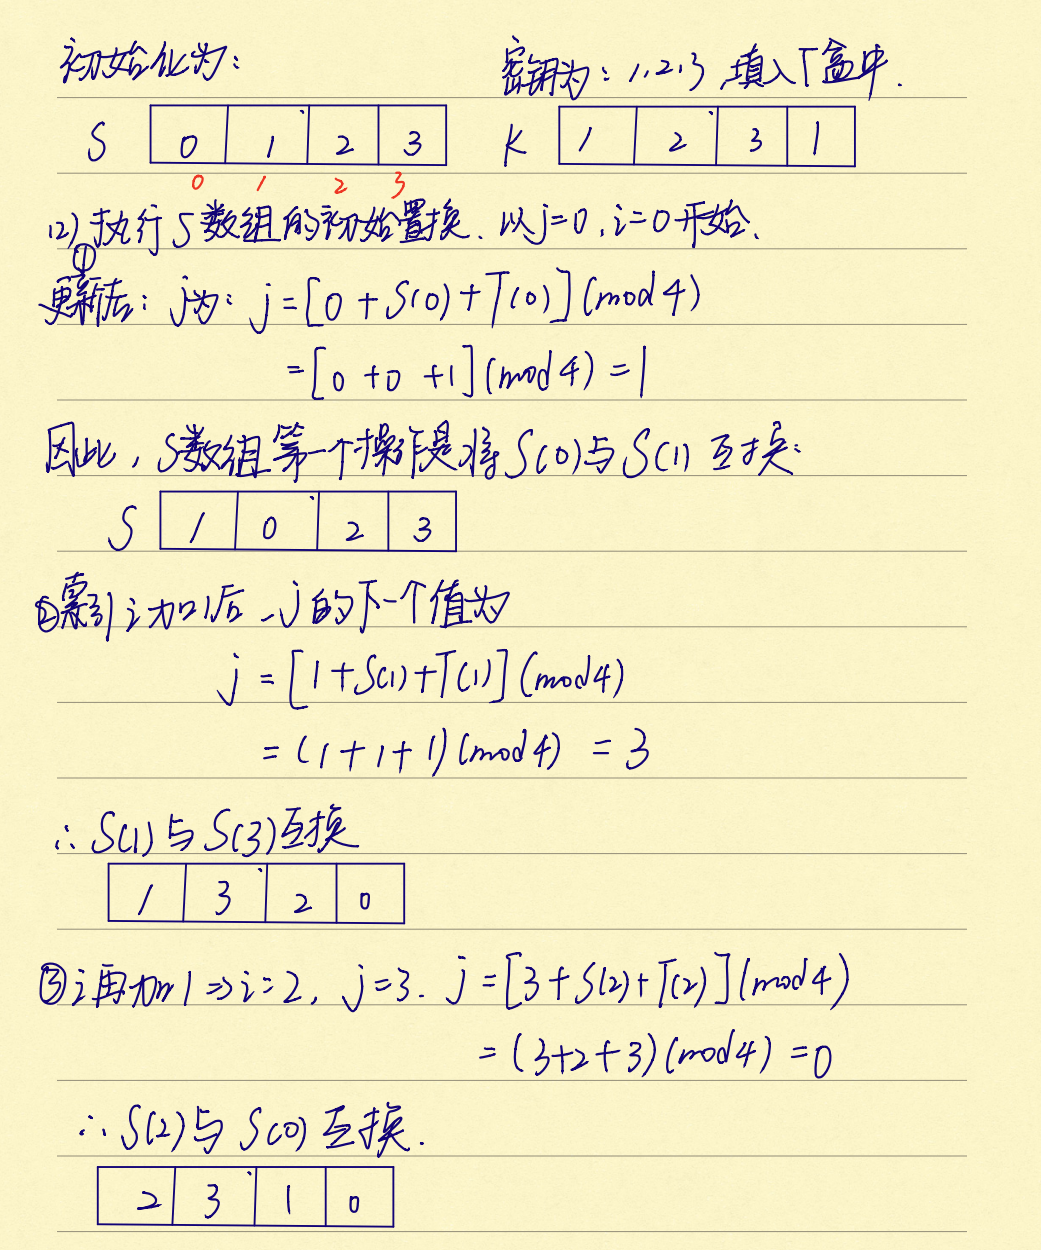 初始化为：
密钥为：1,2,3 填入T盒中.
S 0 1 2 3
K 1 2 3 1
0 1 2 3
(2) 执行S数组的初始置换. 以j=0, i=0开始.
①
更新后：j为：j=[0+S(0)+T(0)](mod 4)
=[0+0+1](mod 4)=1
因此, S数组第一个操作是将S(0)与S(1)互换：
S 1 0 2 3
②索引i加1后, j的下一个值为
j=[1+S(1)+T(1)](mod4)
=(1+1+1)(mod4) =3
∴S(1)与S(3)互换
1 3 2 0
③i再加1⇒i=2, j=3. j=[3+S(2)+T(2)](mod4)
=(3+2+3)(mod4)=0
∴S(2)与S(0)互换.
2 3 1 0